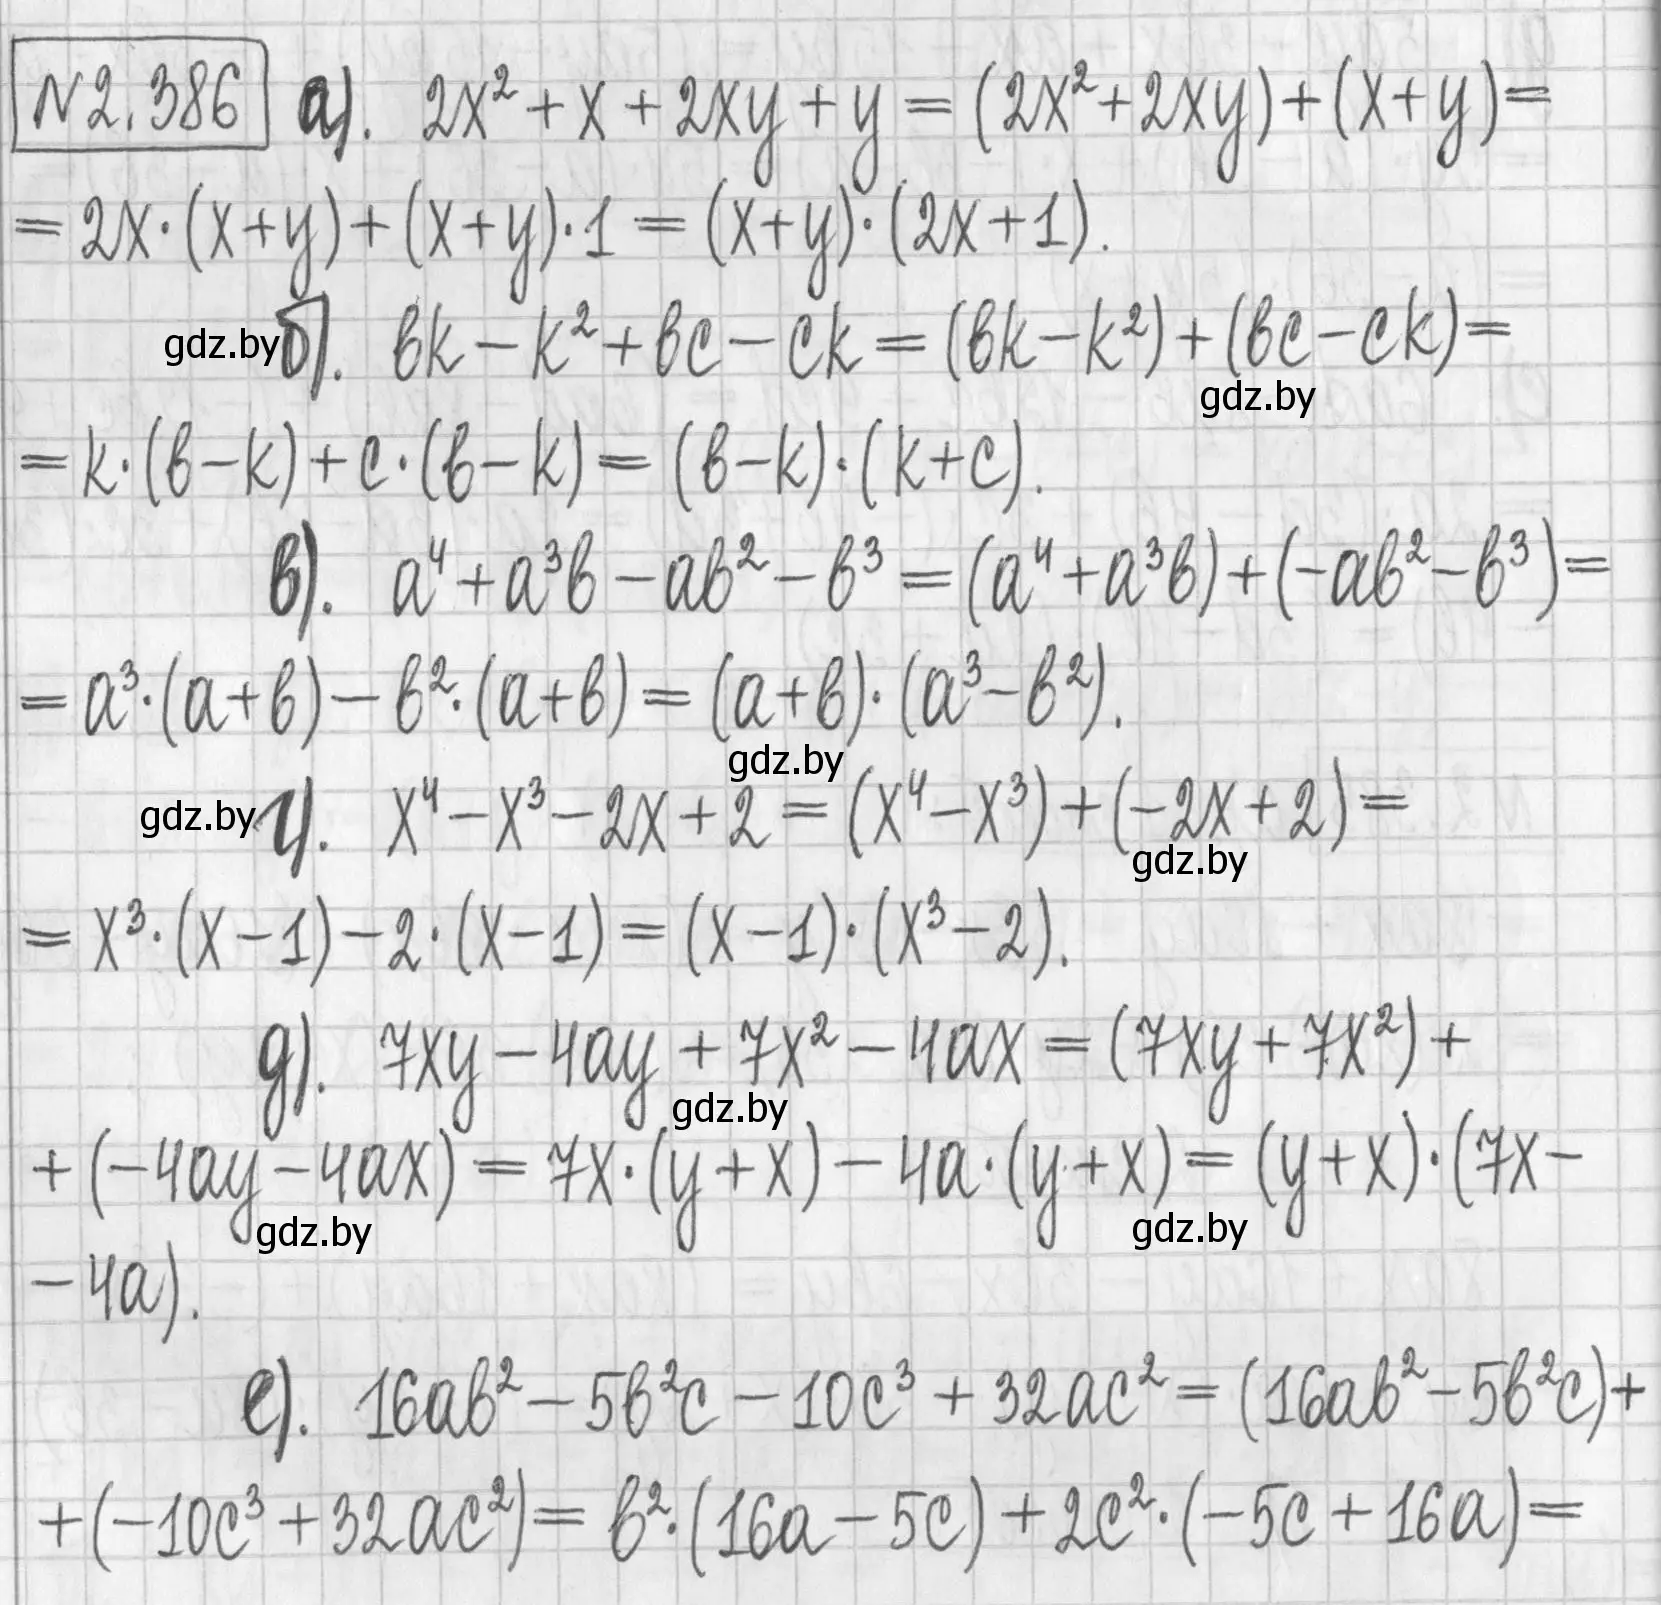 №2.386 а). 2x² + x + 2xy + y = (2x² + 2xy) + (x + y) =
= 2x·(x + y) + (x + y)·1 = (x + y)·(2x + 1).
gdz.by б). bk − k² + bc − ck = (bk − k²) + (bc − ck) =
gdz.by
= k·(b − k) + c·(b − k) = (b − k)·(k + c).
в). a⁴ + a³b − ab² − b³ = (a⁴ + a³b) + (−ab² − b³) =
= a³·(a + b) − b²·(a + b) = (a + b)·(a³ − b²).
gdz.by
gdz.by г). x⁴ − x³ − 2x + 2 = (x⁴ − x³) + (−2x + 2) =
gdz.by
= x³·(x − 1) − 2·(x − 1) = (x − 1)·(x³ − 2).
д). 7xy − 4ay + 7x² − 4ax = (7xy + 7x²) +
gdz.by
+ (−4ay − 4ax) = 7x·(y + x) − 4a·(y + x) = (y + x)·(7x −
gdz.by gdz.by
− 4a).
е). 16ab² − 5b²c − 10c³ + 32ac² = (16ab² − 5b²c) +
+ (−10c³ + 32ac²) = b²·(16a − 5c) + 2c²·(−5c + 16a) =